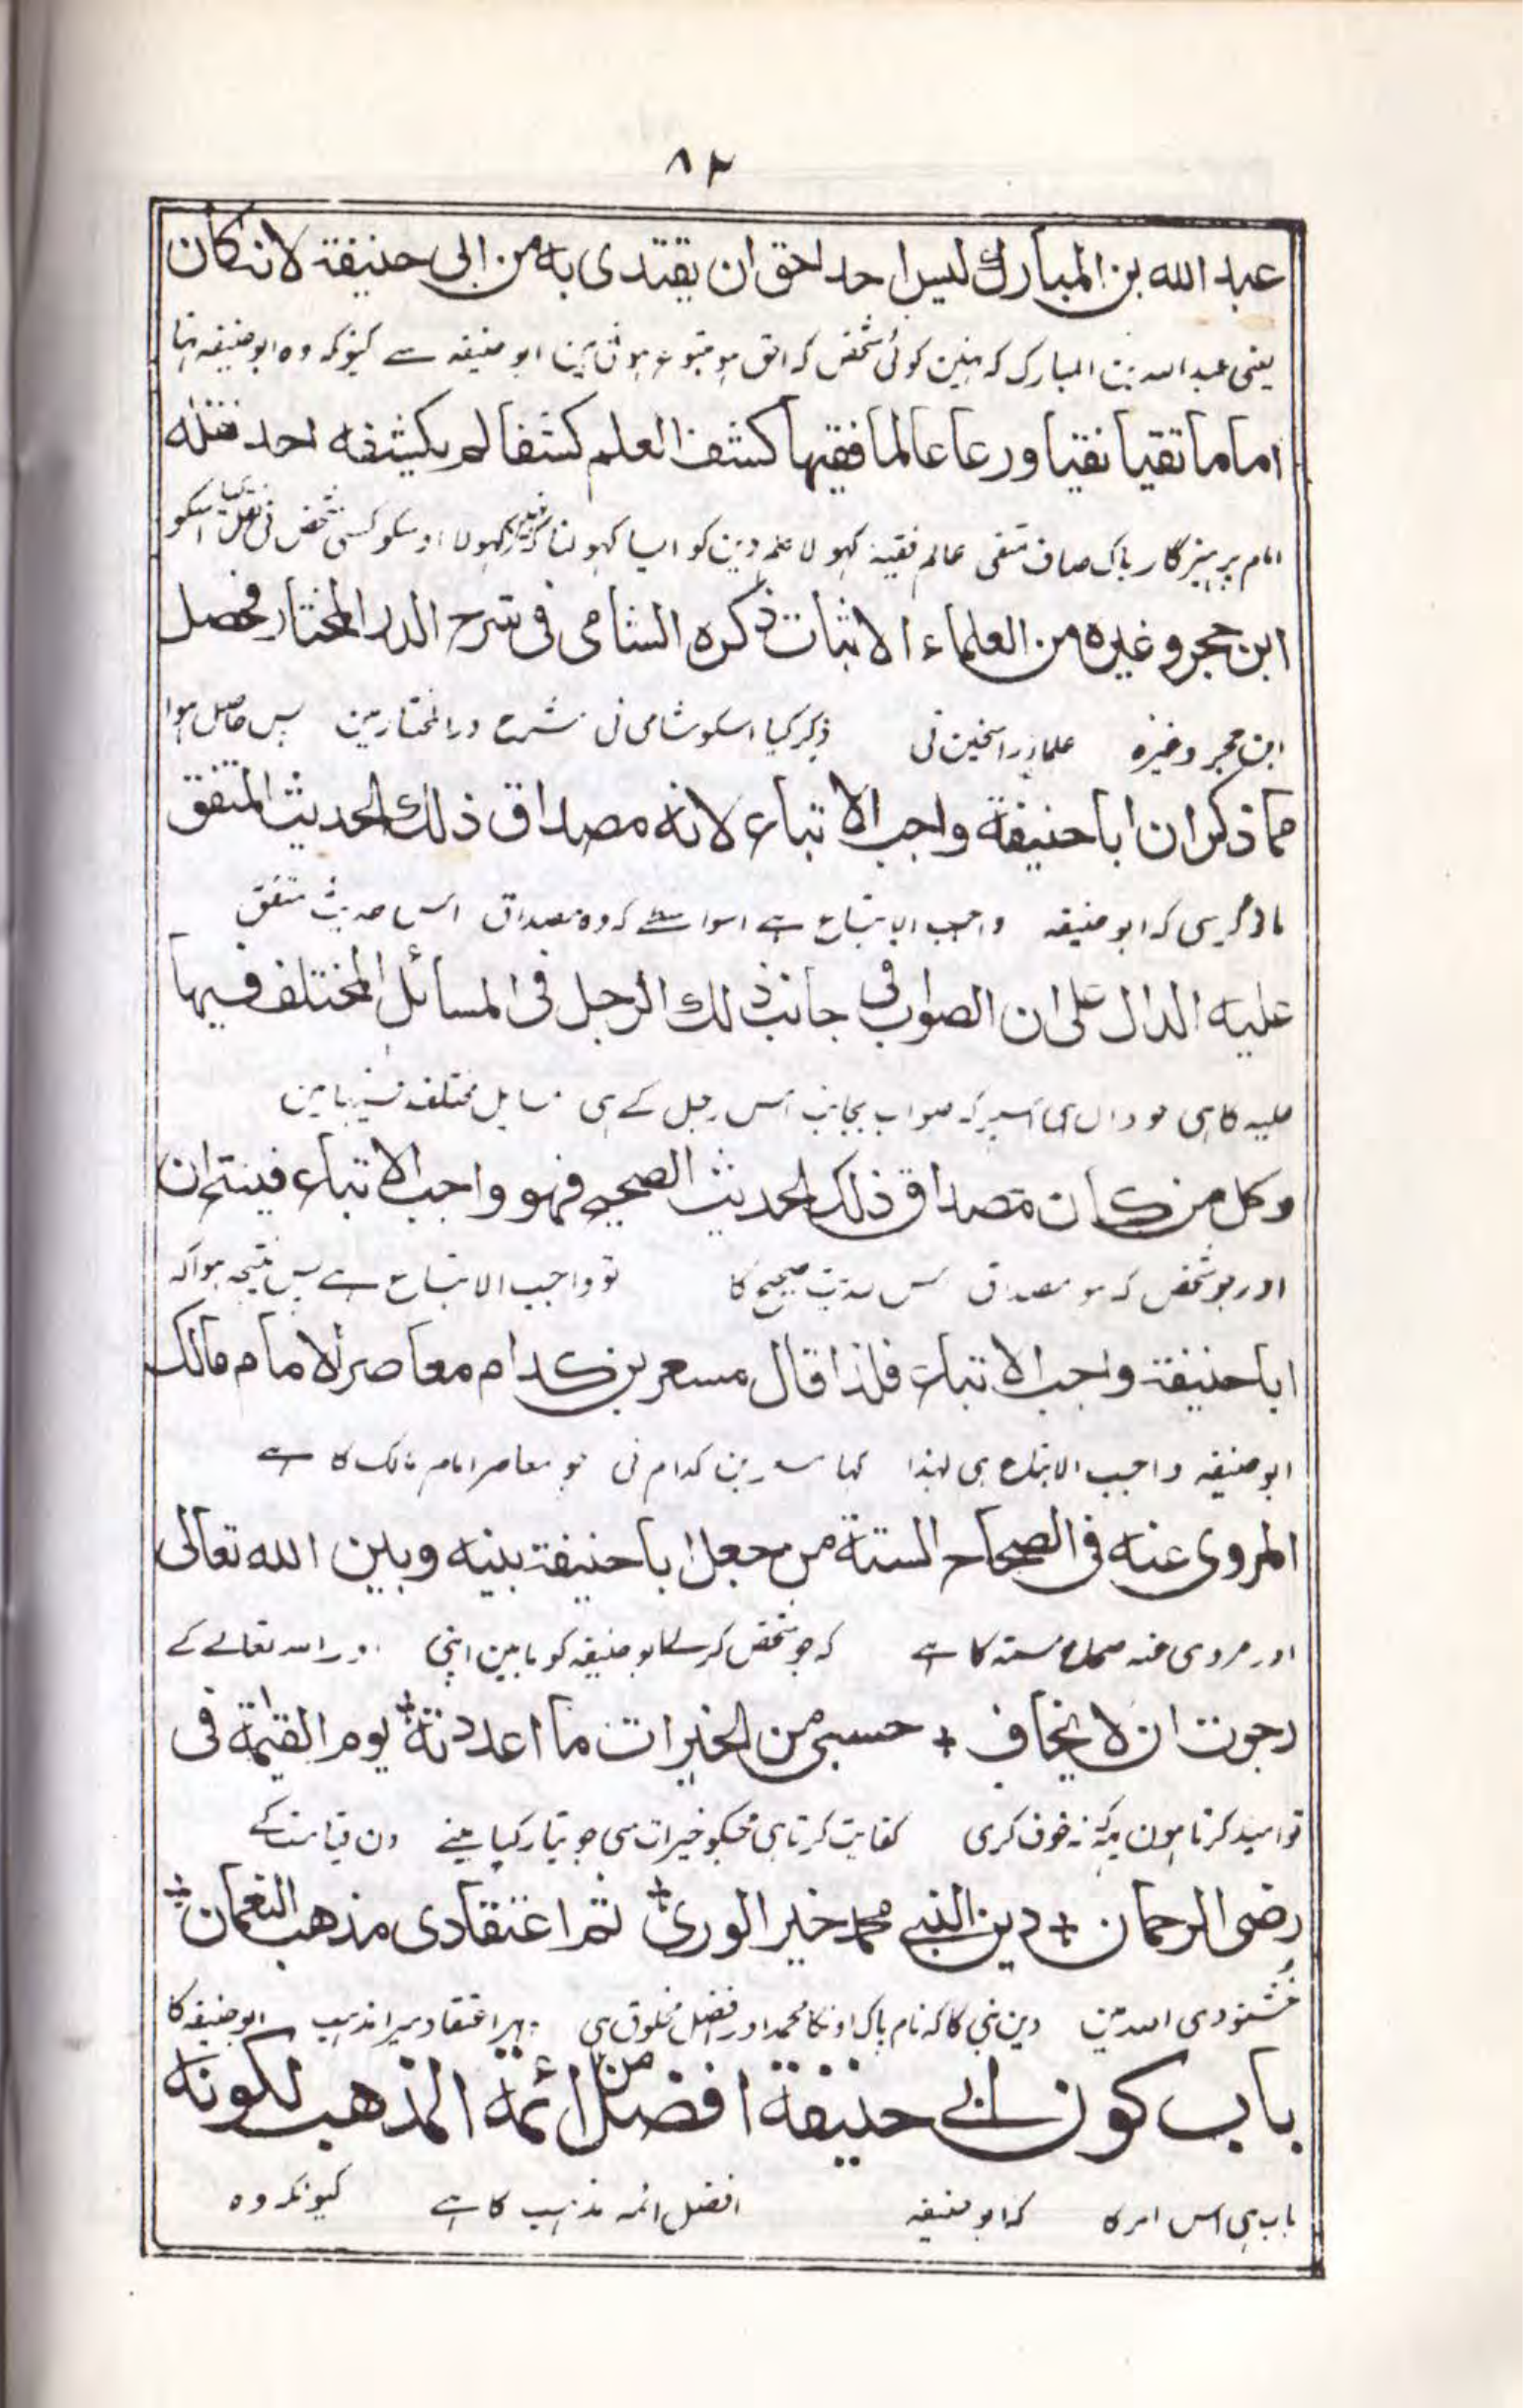 ٨٢
عبد الله بن المبارك ليس احد احق ان يقتدى به من ابى حنيفة لانه كان
يعنى عبد اللہ بن المبارک کہ نہین کوئی شخص کہ احق ہو متبوع ہونی مین ابو حنیفہ سے کیونکہ وہ ابو حنیفہ تہا
اماما تقيا نقيا ورعا عالما فقيها كشف العلم كشفا لم يكشفه احد نقله
امام پرہیزگار پاک صاف متقی عالم فقیہ کہولا علم دین کو ایسا کہولنا کہ نہین کہولا اوسکو کسی شخص نی نقل کیا اسکو
ابن حجر وغيره من العلماء الاثبات ذكره الشامى فى شرح الدر المختار فحصل
ابن حجر وغیرہ علماء راسخین نی ذکر کیا اسکو شامی نی شرح در المختار مین پس حاصل ہوا
مما ذكر ان ابا حنيفة واجب الاتباع لانه مصداق ذلك الحديث المتفق
ماذکر سی کہ ابو حنیفہ واجب الاتباع ہے اسواسطے کہ وہ مصداق اس حدیث متفق
عليه الدال على ان الصواب فى جانب ذلك الرجل فى المسائل المختلف فيها
علیہ کا ہی جو دال ہی اسپر کہ صواب بجانب اس رجل کے ہی مسایل مختلف فیہا مین
وكل من كان مصداق ذلك الحديث الصحيح فهو واجب الاتباع فينتج ان
اور جو شخص کہ ہو مصداق اس حدیث صحیح کا تو واجب الاتباع ہے پس نتیجہ ہوا کہ
ابا حنيفة واجب الاتباع فلذا قال مسعر بن كدام معاصر الامام مالك
ابو حنیفہ واجب الاتباع ہی لہذا کہا مسعر بن کدام نی جو معاصر امام مالک کا ہے
المروى عنه فى الصحاح الستة من جعل ابا حنيفة بينه وبين الله تعالى
اور مروی عنہ صحاح ستہ کا ہے کہ جو شخص کرے ابو حنیفہ کو مابین اپنی اور اللہ تعالے کے
رجوت ان لا يخاف + حسبى من الخيرات ما اعددته يوم القيمة فى
تو امید کرتا ہون مین کہ نہ خوف کری کفایت کرتا ہی مجکو خیرات سی جو تیار کیا مینے دن قیامت کے
رضى الرحمان + دين النبى محمد خير الورى ثم اعتقادى مذهب النعمان
خشنودی اللہ مین دین نبی کا کہ نام پاک اونکا محمد اور افضل مخلوق ہی پہر اعتقاد میرا مذہب ابو حنیفہ کا
باب كون ابى حنيفة افضل من ائمة المذهب لكونه
باب ہی اس امر کا کہ ابو حنیفہ افضل ائمہ مذہب کا ہے کیونکہ وہ